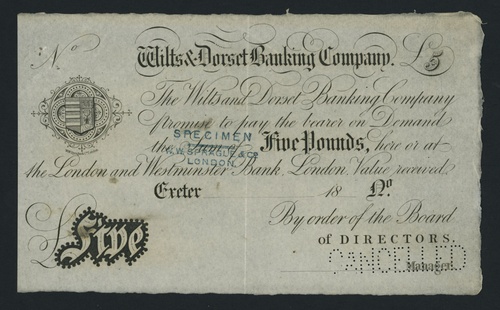 No
Wilts & Dorset Banking Company. £5
The Wilts and Dorset Banking Company
promise to pay the bearer on Demand
SPECIMEN
the Sum of Five Pounds, here or at
W.W. SPRAGUE & Co
LONDON
the London and Westminster Bank, London. Value received.
Exeter 18 No.
By order of the Board
of DIRECTORS.
£Five
CANCELLED
Manager.